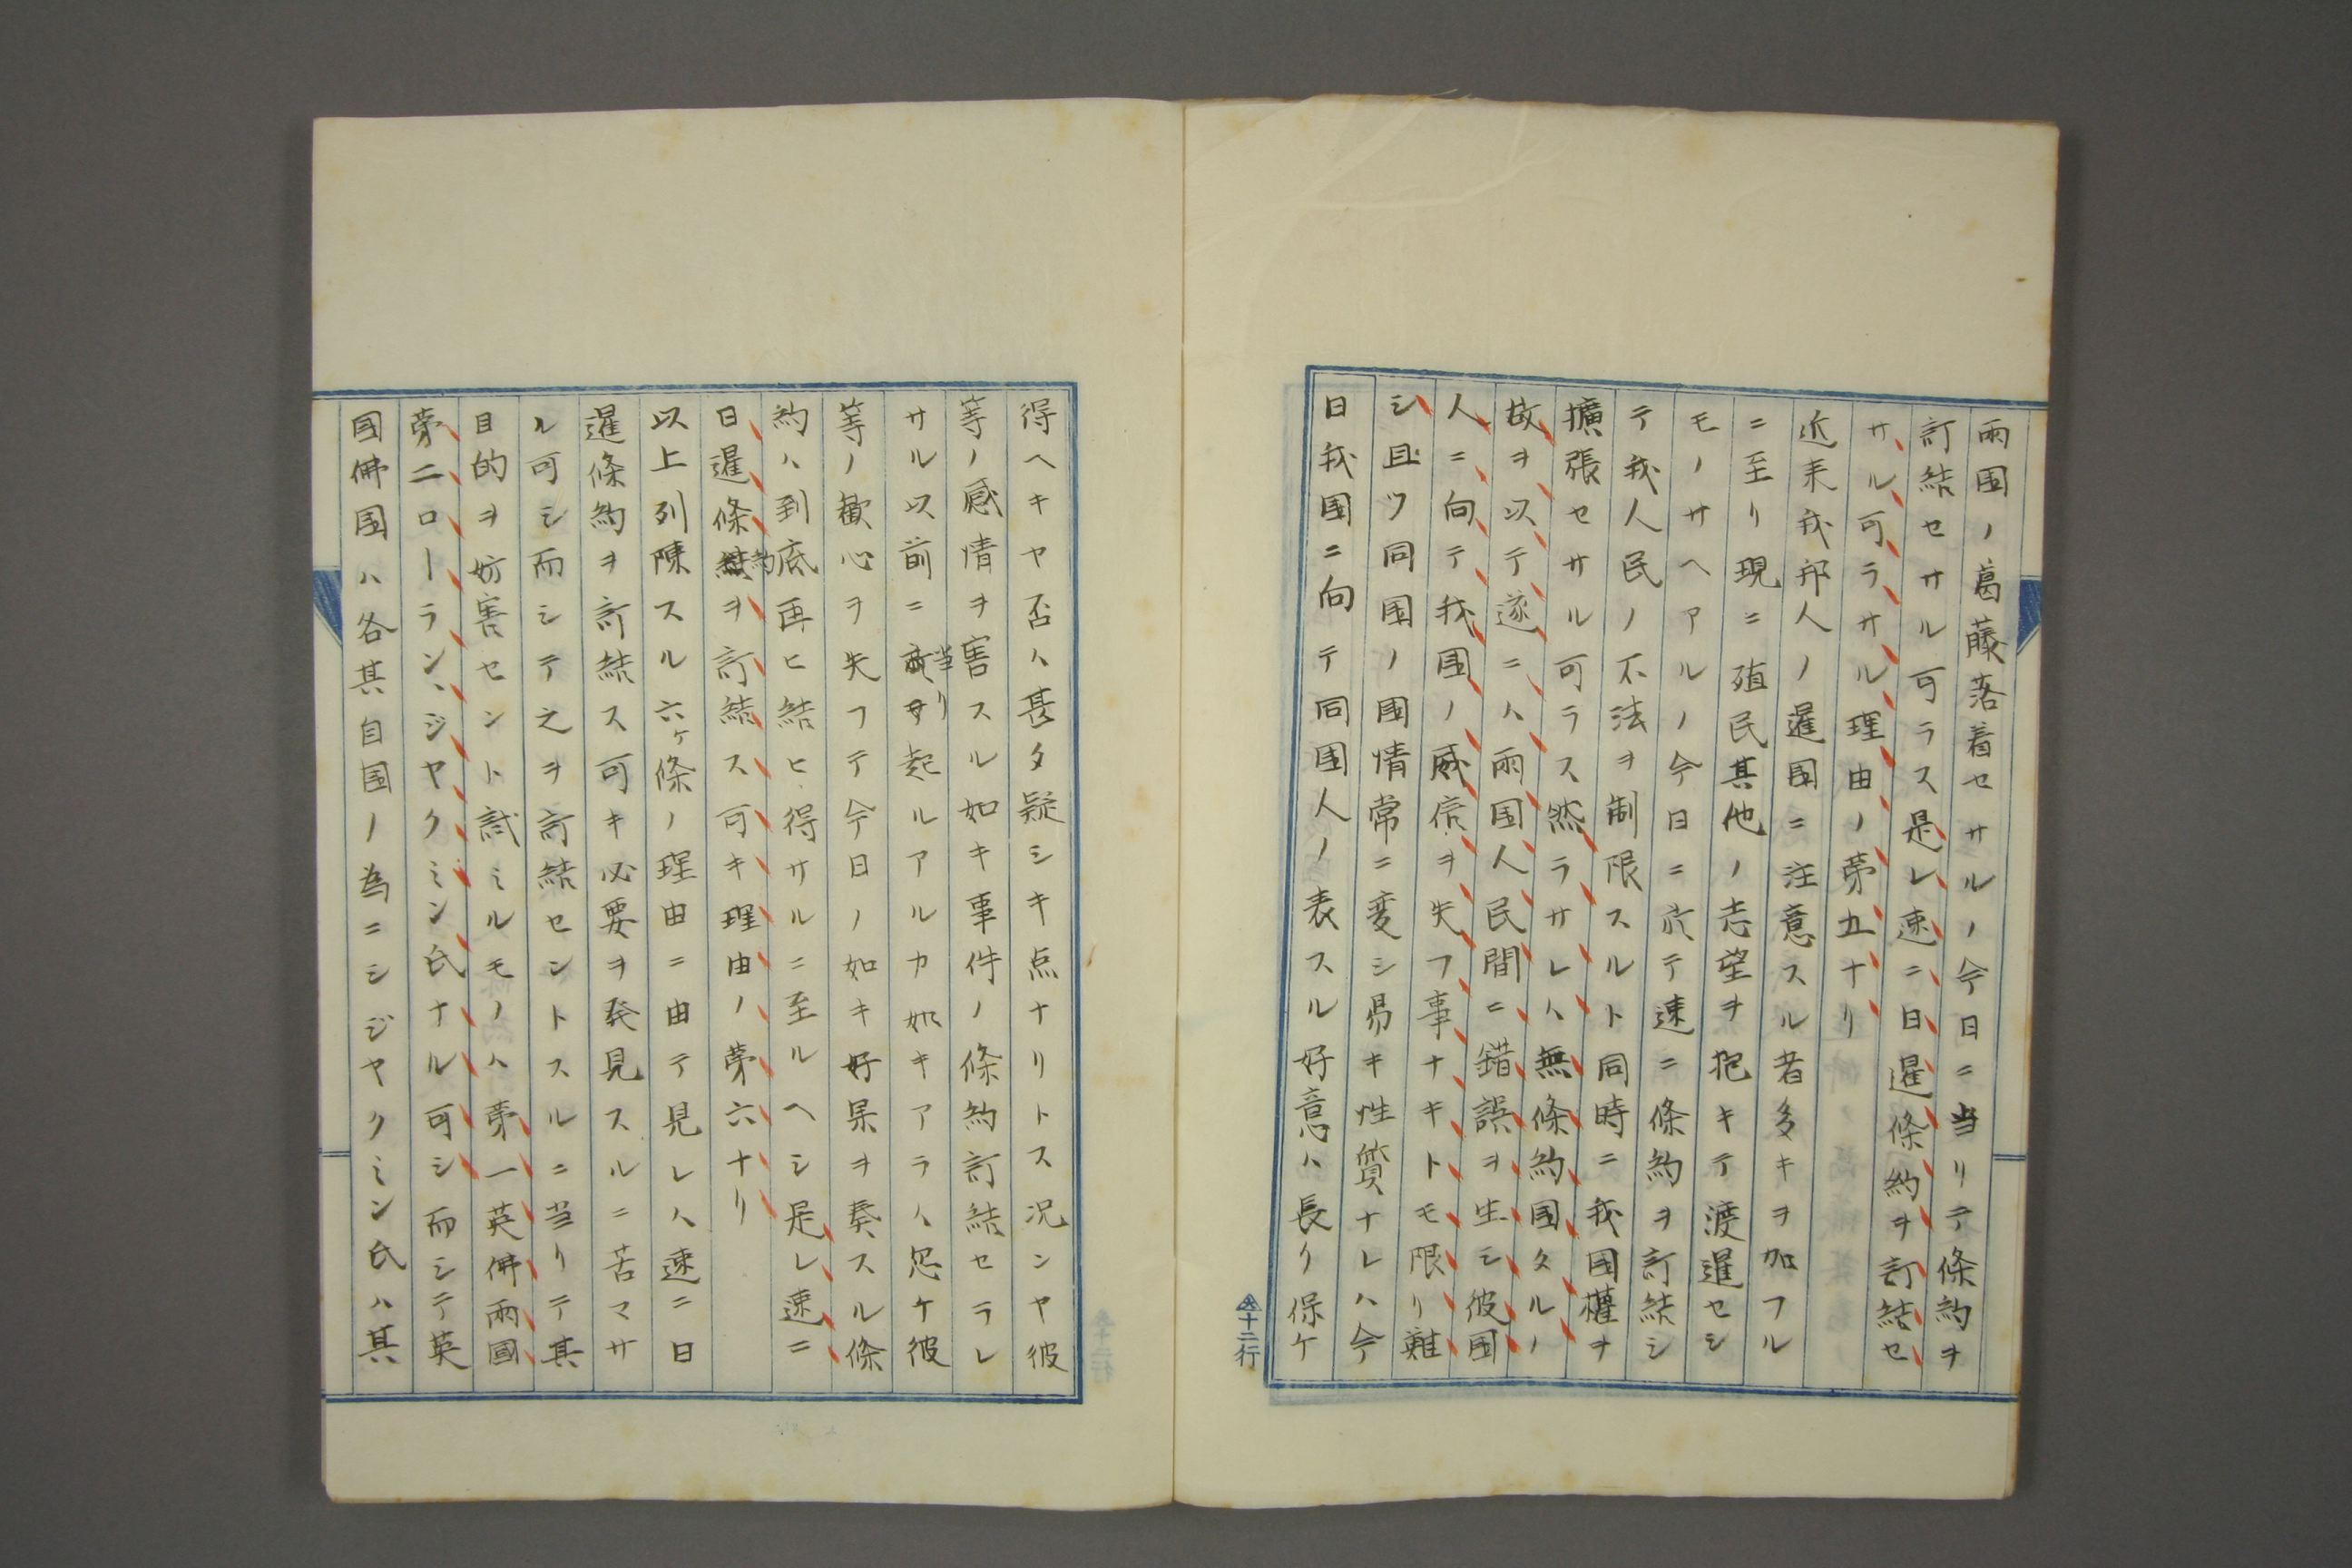 両国ノ葛藤落着セサルノ今日ニ当リテ條約ヲ
訂結セサル可ラス是レ速ニ日暹條約ヲ訂結セ
サル可ラサル理由ノ苐五ナリ
近来我邦人ノ暹国ニ注意スル者多キヲ加フル
ニ至リ現ニ殖民其他ノ志望ヲ抱キテ渡暹セシ
モノサヘアルノ今日ニ於テ速ニ條約ヲ訂結シ
テ我人民ノ不法ヲ制限スルト同時ニ我國権ヲ
擴張セサル可ラス然ラサレハ無條約國タルノ
故ヲ以テ遂ニハ両国人民間ニ錯誤ヲ生シ彼国
人ニ向テ我国ノ威信ヲ失フ事ナキトモ限リ難
シ且ツ同国ノ國情常ニ変シ易キ性質ナレハ今
日我国ニ向テ同国人ノ表スル好意ハ長ク保ケ
金十二行
得ヘキヤ否ハ甚タ疑シキ点ナリトス况ンヤ彼
等ノ感情ヲ害スル如キ事件ノ條約訂結セラレ
サル以前ニ当リ起ルアルカ如キアラハ忽ケ彼
等ノ歓心ヲ失フテ今日ノ如キ好果ヲ奏スル條
約ハ到底再ヒ結ヒ得サルニ至ルヘシ是レ速ニ
日暹條約ヲ訂結ス可キ理由ノ苐六ナリ
以上列陳スル六ヶ條ノ理由ニ由テ見レハ速ニ日
暹條約ヲ訂結ス可キ必要ヲ発見スルニ苦マサ
ル可シ而シテ之ヲ訂結セントスルニ当リテ其
目的ヲ妨害セント試ミルモノハ苐一英佛両國
苐二ローラン、ジヤクミン氏ナル可シ而シテ英
国佛国ハ各其自国ノ為ニシジヤクミン氏ハ其